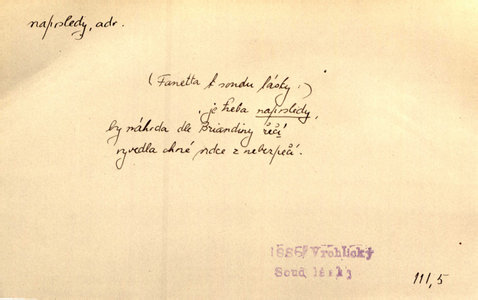 naposledy, adv.
(Fanetta k soudu lásky:)
je třeba naposledy,
by náhrda dle Briandiny řeči
vyvedla choré srdce z nebezpečí.
1886/ Vrchlický
Soud lásky
111,5